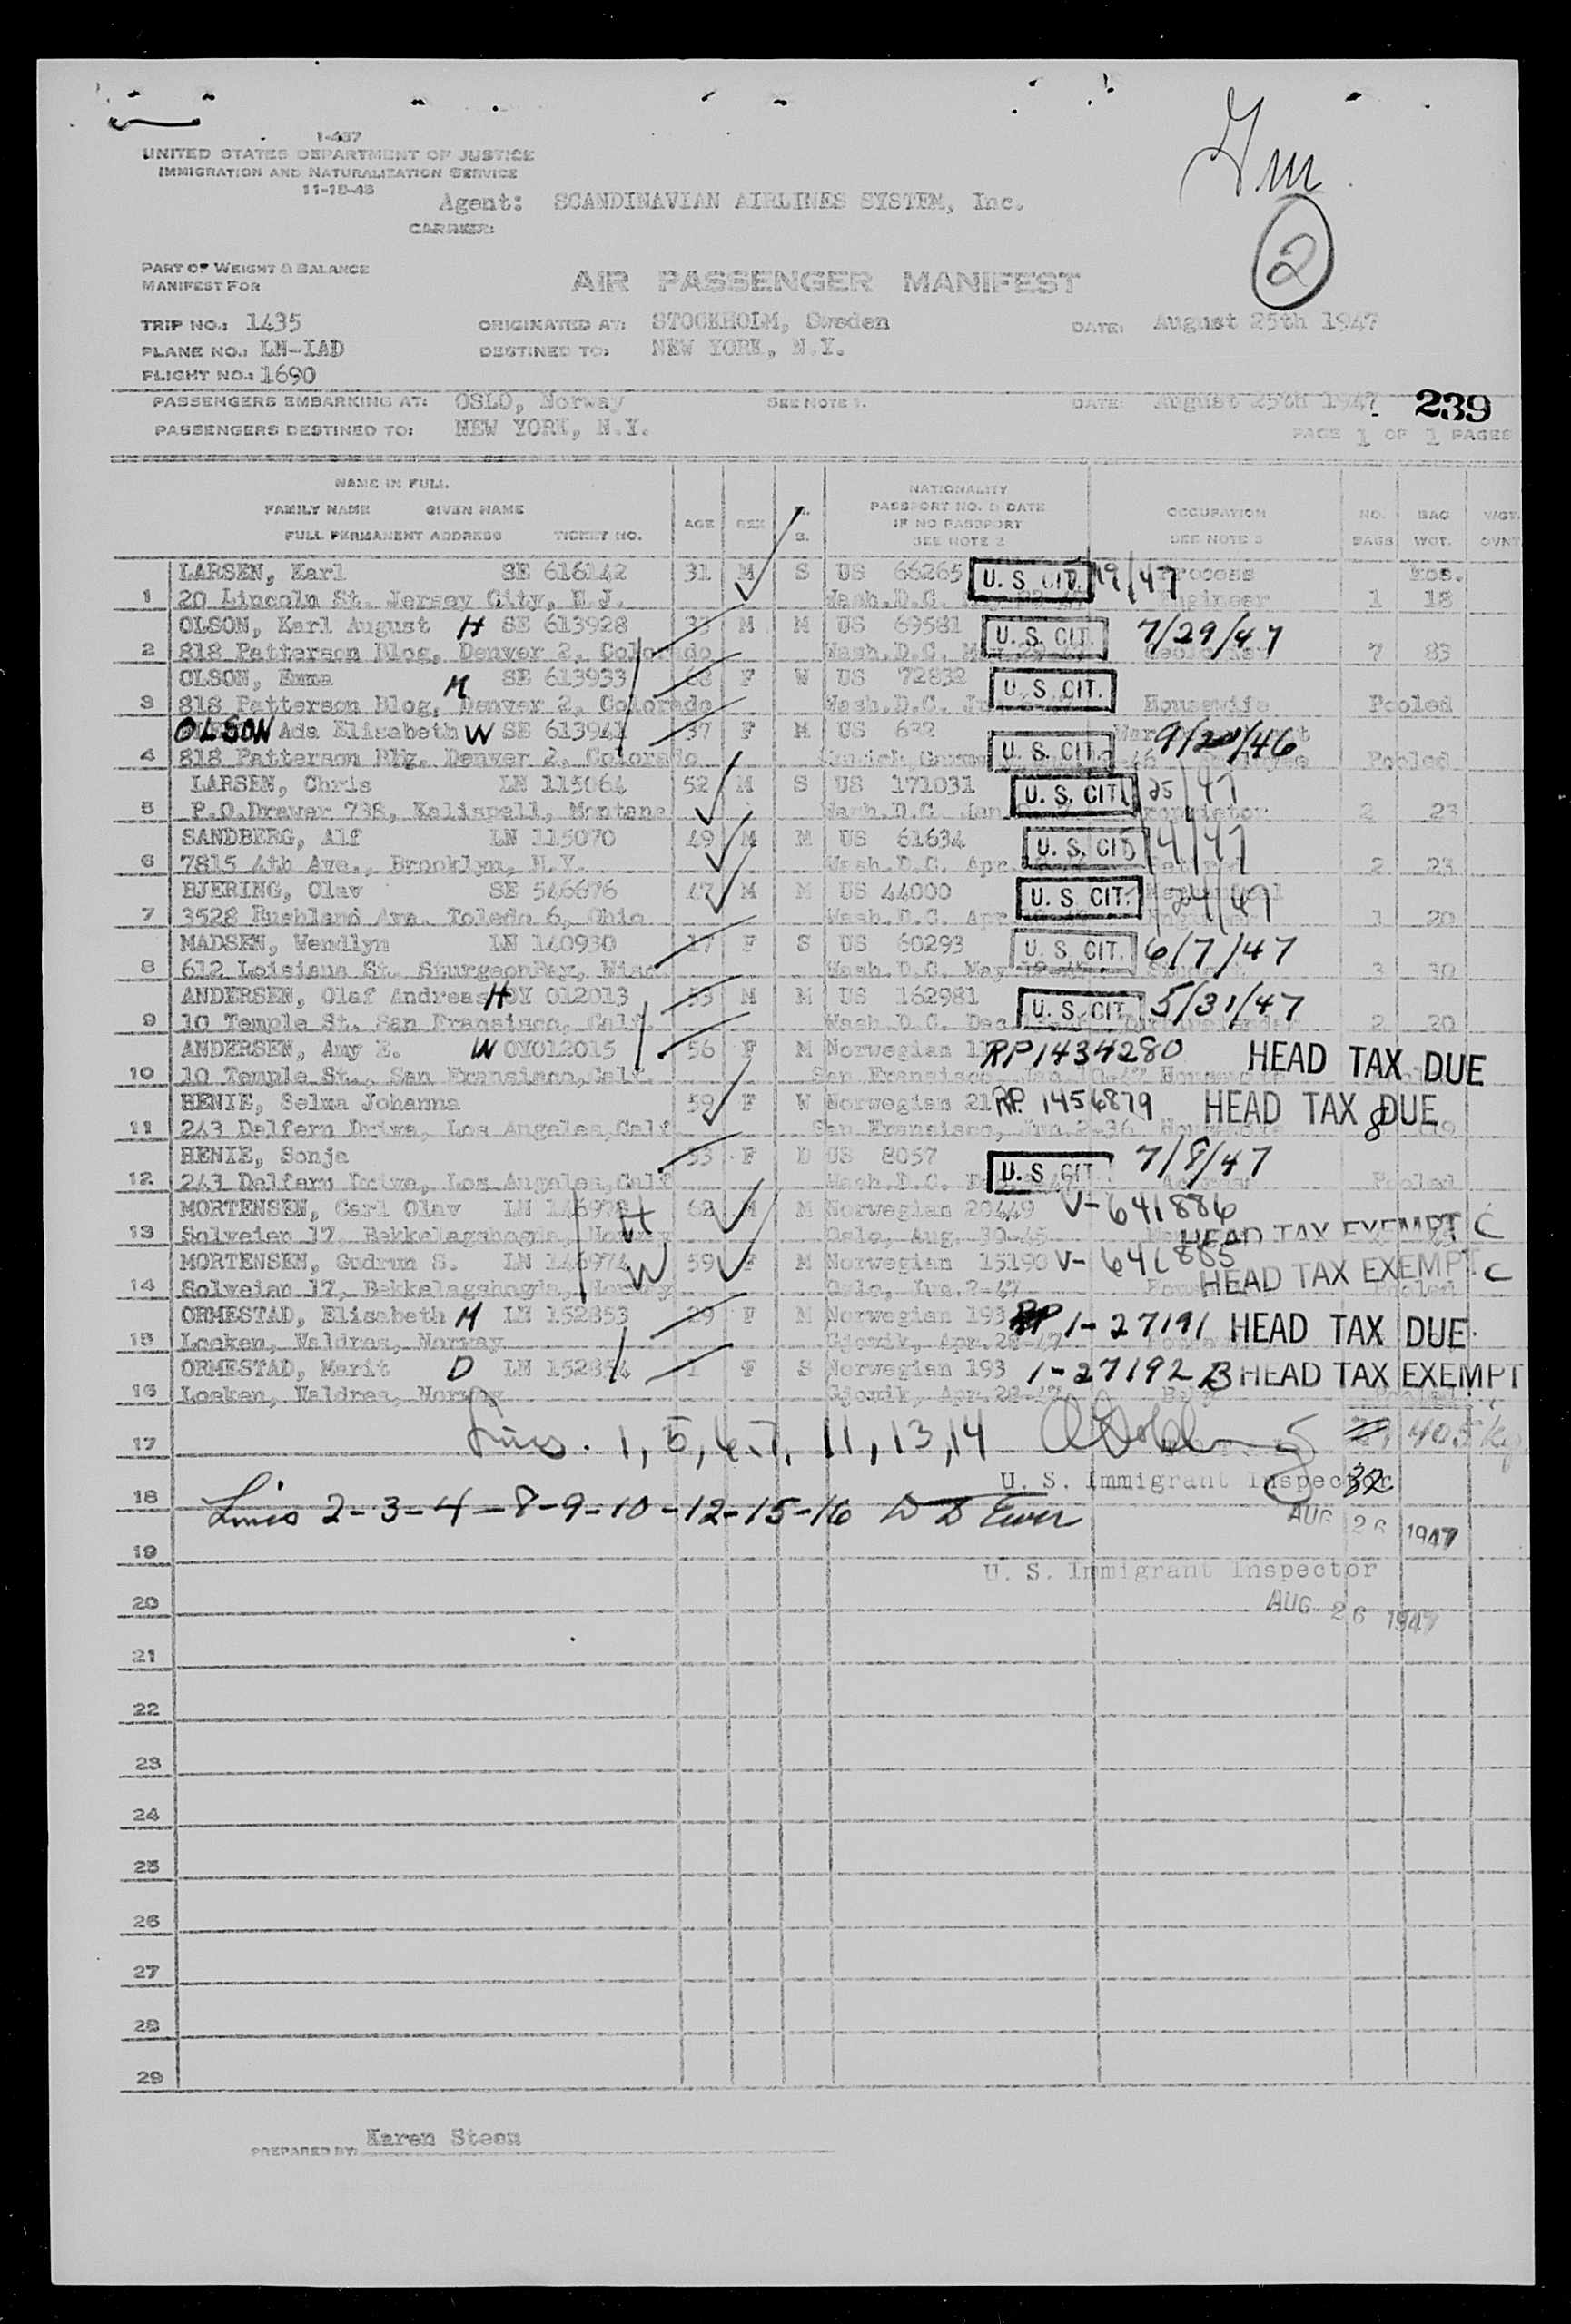 1-437
UNITED STATES DEPARTMENT OF JUSTICE
IMMIGRATION AND NATURALIZATION SERVICE
11-18-43
Agent: SCANDINAVIAN AIRLINES SYSTEM, Inc.
CARRIER:
2
PART OF WEIGHT & BALANCE
MANIFEST FOR
AIR PASSENGER MANIFEST
TRIP NO.: 1435 ORIGINATED AT: STOCKHOLM, Sweden DATE: August 25th 1947
PLANE NO.: LN-IAD DESTINED TO: NEW YORK, N.Y.
FLIGHT NO.: 1690
PASSENGERS EMBARKING AT: OSLO, Norway SEE NOTE 1. DATE: August 25th 1947 239
PASSENGERS DESTINED TO: NEW YORK, N.Y. PAGE 1 OF 1 PAGES
NAME IN FULL
FAMILY NAME GIVEN NAME
FULL PERMANENT ADDRESS TICKET NO.
AGE SEX S.
NATIONALITY
PASSPORT NO. & DATE
IF NO PASSPORT
SEE NOTE 2
OCCUPATION
SEE NOTE 3
NO. BAGS BAG WGT. WGT. OVNT
LARSEN, Karl SE 616142 31 M S US 66265 U. S. CIT. 19/47 Process Kos.
1 20 Lincoln St. Jersey City, N.J. Wash.D.C. Engineer 1 18
OLSON, Karl August H SE 613928 33 M M US 69581 U. S. CIT. 7/29/47
2 818 Patterson Blog, Denver 2, Colorado Wash.D.C. 7 83
OLSON, Emma M SE 613933 68 F W US 72832 U. S. CIT.
3 818 Patterson Blog, Denver 2, Colorado Wash.D.C. Housewife Pooled
OLSON Ada Elisabeth W SE 613941 37 F M US 632 U. S. CIT. 9/20/46
4 818 Patterson Blg, Denver 2, Colorado Pooled
LARSEN, Chris LN 115064 52 M S US 171031 U. S. CIT. 25/47
5 P.O.Drawer 738, Kalispell, Montana Wash.D.C. Jan 2 23
SANDBERG, Alf LN 115070 49 M M US 61634 U. S. CIT. 4/47
6 7815 4th Ave., Brooklyn, N.Y. Wash.D.C. Apr. 2 23
BJERING, Olav SE 546676 47 M M US 44000 U. S. CIT. 24/47
7 3528 Rushland Ave. Toledo 6, Ohio Wash.D.C. Apr Engineer 1 20
MADSEN, Wendlyn LN 140930 17 F S US 60293 U. S. CIT. 6/7/47
8 612 Loisiana St. SturgeonBay, Wisc. Wash.D.C. May Student 3 30
ANDERSEN, Olaf Andreas H OY 012013 53 M M US 162981 U. S. CIT. 5/31/47
9 10 Temple St. San Fransisco, Calf. Wash.D.C. Dec 2 20
ANDERSEN, Amy E. W OY012015 56 F M Norwegian RP 1434280 HEAD TAX DUE
10 10 Temple St., San Fransisco,Calf. San Fransisco, Housewife
HENIE, Selma Johanna 59 F W Norwegian 21 RP. 1456879 HEAD TAX DUE
11 243 Delfern Drive, Los Angeles,Calf San Fransisco, Jun.2-36 8
HENIE, Sonja 33 F D US 8057 U. S. CIT. 7/8/47
12 243 Delfern Drive, Los Angeles,Calf Wash.D.C. Actress Pooled
MORTENSEN, Carl Olav LN 146973 H 62 M M Norwegian 20449 V-641886
13 Solveien 17, Bekkelagshogda, Norway Oslo, Aug. 30-45 HEAD TAX EXEMPT C
MORTENSEN, Gudrun S. LN 146974 W 59 F M Norwegian 15190 V-641885
14 Solveien 17, Bekkelagshogda, Norway Oslo, HEAD TAX EXEMPT C
ORMESTAD, Elisabeth M LN 152853 29 F M Norwegian 193 RP 1-27191 HEAD TAX DUE
15 Loeken, Valdres, Norway Gjovik, Apr.28-47
ORMESTAD, Marit D LN 152854 1 F S Norwegian 193 1-27192 B HEAD TAX EXEMPT
16 Loeken, Valdres, Norway Gjovik, Apr.28-47 Baby Pooled
17 Lines. 1, 5, 6, 7, 11, 13, 14 405 Kg
U. S. Immigrant Inspector 32
18 Lines 2-3-4-8-9-10-12-15-16
AUG 26 1947
19
U. S. Immigrant Inspector
20
AUG 26 1947
21
22
23
24
25
26
27
28
29
PREPARED BY: Karen Steen